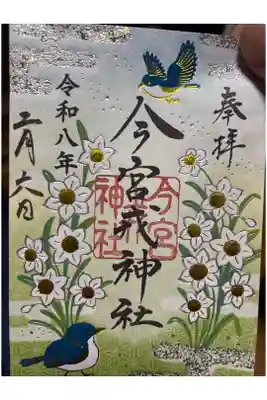 奉拝
今宮戎神社
今宮
戎
神社
令和八年
二月六日